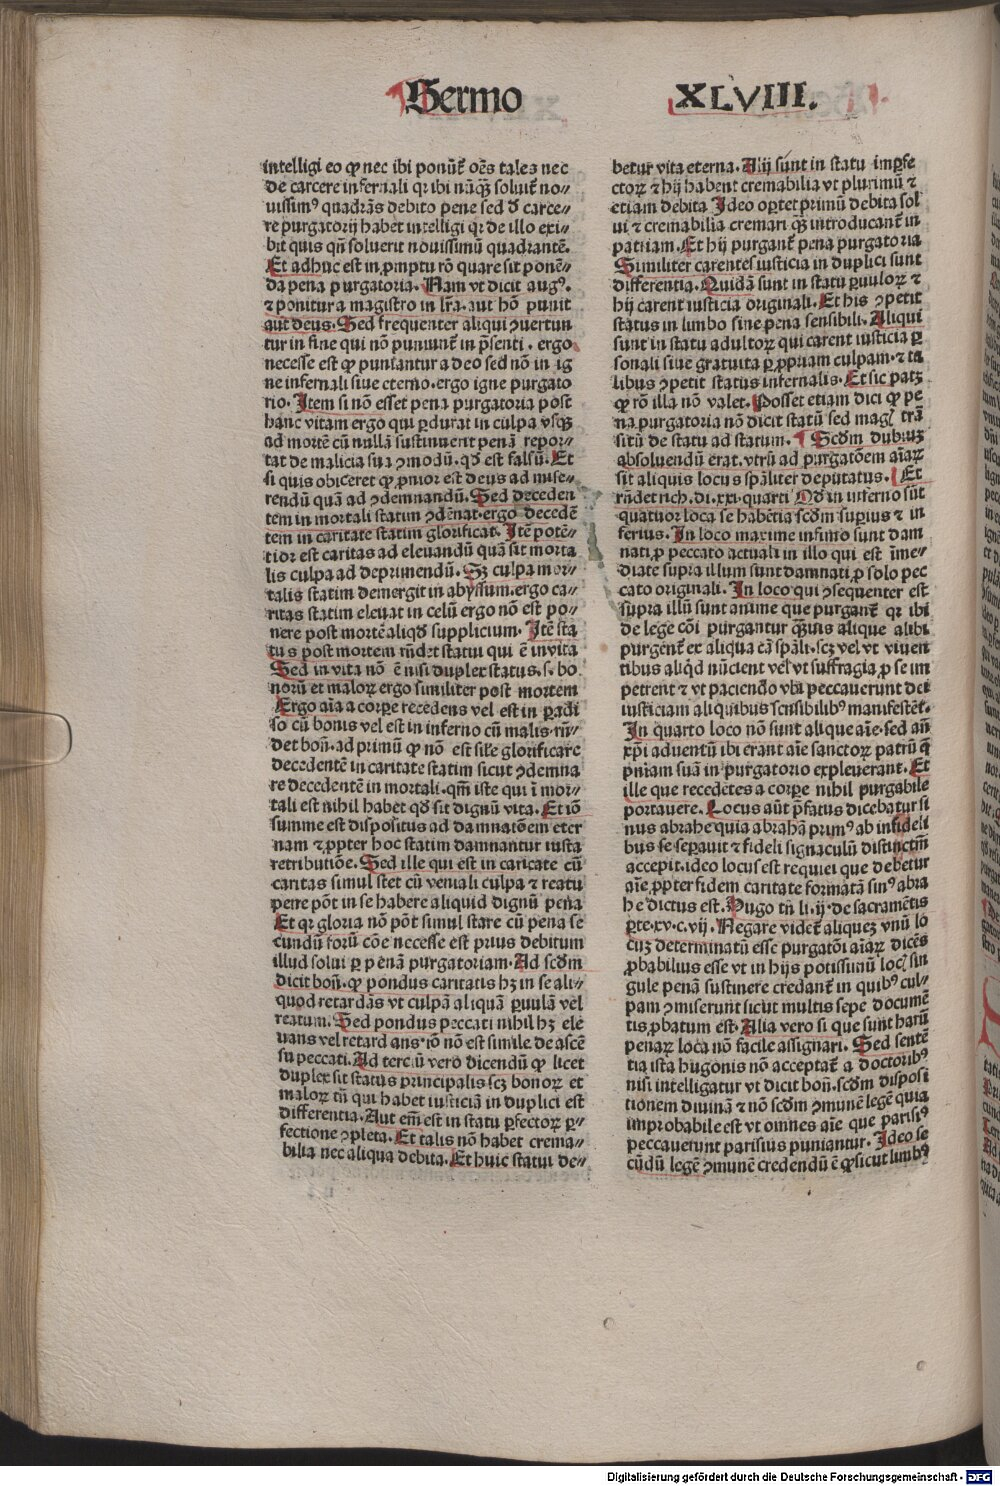 Sermo XLVIII.
intelligi eo ꝙ nec ibi ponūt̄ oēs talea nec
de carcere infernali qꝛ ibi nūqȝ soluit̄ no⸗
uissimꝰ quadrās debito pene sed d̄ carce⸗
re purgatorij habet intelligi qꝛ de illo exi⸗
bit quis qn̄ soluerit nouissimū quadrantē.
Et adhuc est in ꝓmptu rō quare sit ponē⸗
da pena purgatoria. Nam vt dicit augꝰ.
⁊ ponitur a magistro in lr̄a. aut hō punit
aut deus. Sed frequenter aliqui ꝯuertun
tur in fine qui nō puniunt̄ in p̄senti. ergo
necesse est ꝙ puniantur a deo sed nō in ig
ne infernali siue eterno. ergo igne purgato
rio. Item si nō esset pena purgatoria post
hanc vitam ergo qui ꝑdurat in culpa vsqȝ
ad mortē cū nullā sustinuerit penā repor⸗
tat de malicia sua ꝯmodū. qd̓ est falsū. Et
si quis obiceret ꝙ ꝓnior est deus ad mise⸗
rendū quā ad ꝯdemnandū. Sed deceden
tem in mortali statim ꝯdēnat. ergo decedē
tem in caritate statim glorificat. Itē potē⸗
tior est caritas ad eleuandū quā sit morta
lis culpa ad deprimendū. Sȝ culpa mor⸗
talis statim demergit in abyssum. ergo ca⸗
ritas statim eleuat in celū ergo nō est po⸗
nere post mortē aliqd̓ supplicium. Itē sta
tus post mortem rn̄det statui qui ē in vita
Sed in vita nō ē nisi duplex status. s. bo
noꝝ et maloꝝ ergo similiter post mortem
Ergo aīa a corpe recedens vel est in ꝑadi
so cū bonis vel est in inferno cū malis. rn̄⸗
det bon̄. ad primū ꝙ nō est sile glorificare
decedentē in caritate statim sicut ꝯdemna
re decedentē in mortali. qm̄ iste qui ī mor⸗
tali est nihil habet qd̓ sit dignū vita. Et iō
summe est dispositus ad damnatōem eter
nam ⁊ ꝓpter hoc statim damnantur iusta
retributiōe. Sed ille qui est in caritate cū
caritas simul stet cū veniali culpa ⁊ reatu
pene pōt in se habere aliquid dignū pena
Et qꝛ gloria nō pōt simul stare cū pena se
cundū forū cōe necesse est prius debitum
illud solui ꝑ penā purgatoriam. Ad scd̓m
dicit bon̄. ꝙ pondus caritatis hȝ in se ali⸗
quod retardās vt culpā aliquā ꝑuulā vel
reatum. Sed pondus peccati nihil hȝ ele
uans vel retardans. iō nō est simile de ascē
su peccati. Ad terciū vero dicendū ꝙ licet
duplex sit status principalis scȝ bonoꝝ et
maloꝝ tn̄ qui habet iusticiā in duplici est
differentia. Aut em̄ est in statu ꝑfectoꝝ ꝑ⸗
fectione ꝯpleta. Et talis nō habet crema⸗
bilia nec aliqua debita. Et huic statui de⸗
betur vita eterna. Alij sunt in statu imꝑfe
ctoꝝ ⁊ hij habent cremabilia vt plurimū ⁊
etiam debita Ideo oportet primū debita sol
ui ⁊ cremabilia cremari qȝ introducant̄ in
patriam. Et hij purgant̄ pena purgatoria
Similiter carentes iusticia in duplici sunt
differentia. Quidā sunt in statu ꝑuuloꝝ ⁊
hij carent iusticia originali. Et his ꝯpetit
status in limbo sine pena sensibili. Aliqui
sunt in statu adultoꝝ qui carent iusticia ꝑ
sonali siue gratuita ꝑ ꝓpriam culpam. ⁊ ta
libus ꝯpetit status infernalis. Et sic patȝ
ꝙ rō illa nō valet. Posset etiam dici ꝙ pe
na purgatoria nō dicit statū sed magꝭ trā
sitū de statu ad statum. Scd̓m dubiuȝ
absoluendū erat. vtrū ad purgatōem aīaꝝ
sit aliquis locus spāliter deputatus. Et
rn̄det rich. di. xxi. quarti Qd̓ in inferno sūt
quatuor loca se habētia scd̓m superius ⁊ in
ferius. In loco maxime infimo sunt dam
nati ꝓ peccato actuali in illo qui est īme⸗
diate supra illum sunt damnati ꝓ solo pec
cato originali. In loco qui ꝯsequenter est
supra illū sunt anime que purgant̄ qꝛ ibi
de lege cōi purgantur qȝuis alique alibi
purgent̄ ex aliqua cā spāli. scȝ vel vt viuen
tibus aliqd̓ nūcient vel vt suffragia ꝓ se im
petrent ⁊ vt paciendo vbi peccauerunt dei
iusticiam aliquibus sensibilibꝰ manifestēt.
In quarto loco nō sunt alique aīe. sed an̄
xp̄i aduentū ibi erant aīe sanctoꝝ patrū q̄
pn̄iam suā in purgatorio expleuerant. Et
ille que recedētes a corpe nihil purgabile
portauere. Locus aūt p̄fatus dicebatur si
nus abrahe quia abrahā primꝰ ab infideli
bus se sepauit ⁊ fideli signaculū distinctm̄
accepit. ideo locus est requiei que debetur
aīe ꝓpter fidem caritate formatā sinꝰ abra
he dictus est. Hugo tn̄ li. ij. de sacramētis
ꝑte. xv. c. vij. Negare videt̄ aliqueȝ vnū lo
cuȝ determinatū esse purgatōi aīaꝝ dicēs
ꝓbabilius esse vt in hijs potissimū locꝭ sin
gule penā sustinere credant̄ in quibꝰ cul⸗
pam ꝯmiserunt sicut multis sepe documē
tis ꝓbatum est. Alia vero si que sunt harū
penaꝝ loca nō facile assignari. Sed sentē
tia ista hugonis nō acceptat̄ a doctoribꝰ
nisi intelligatur vt dicit bon̄. scd̓m disposi
tionem diuinā ⁊ nō scd̓m ꝯmunē legē quia
improbabile est vt omnes aīe que parisiꝰ
peccauerunt parisius puniantur. Ideo se
cūdū legē ꝯmunē credendū ē ꝙ sicut limbꝰ
Digitalisierung gefördert durch die Deutsche Forschungsgemeinschaft - DFG